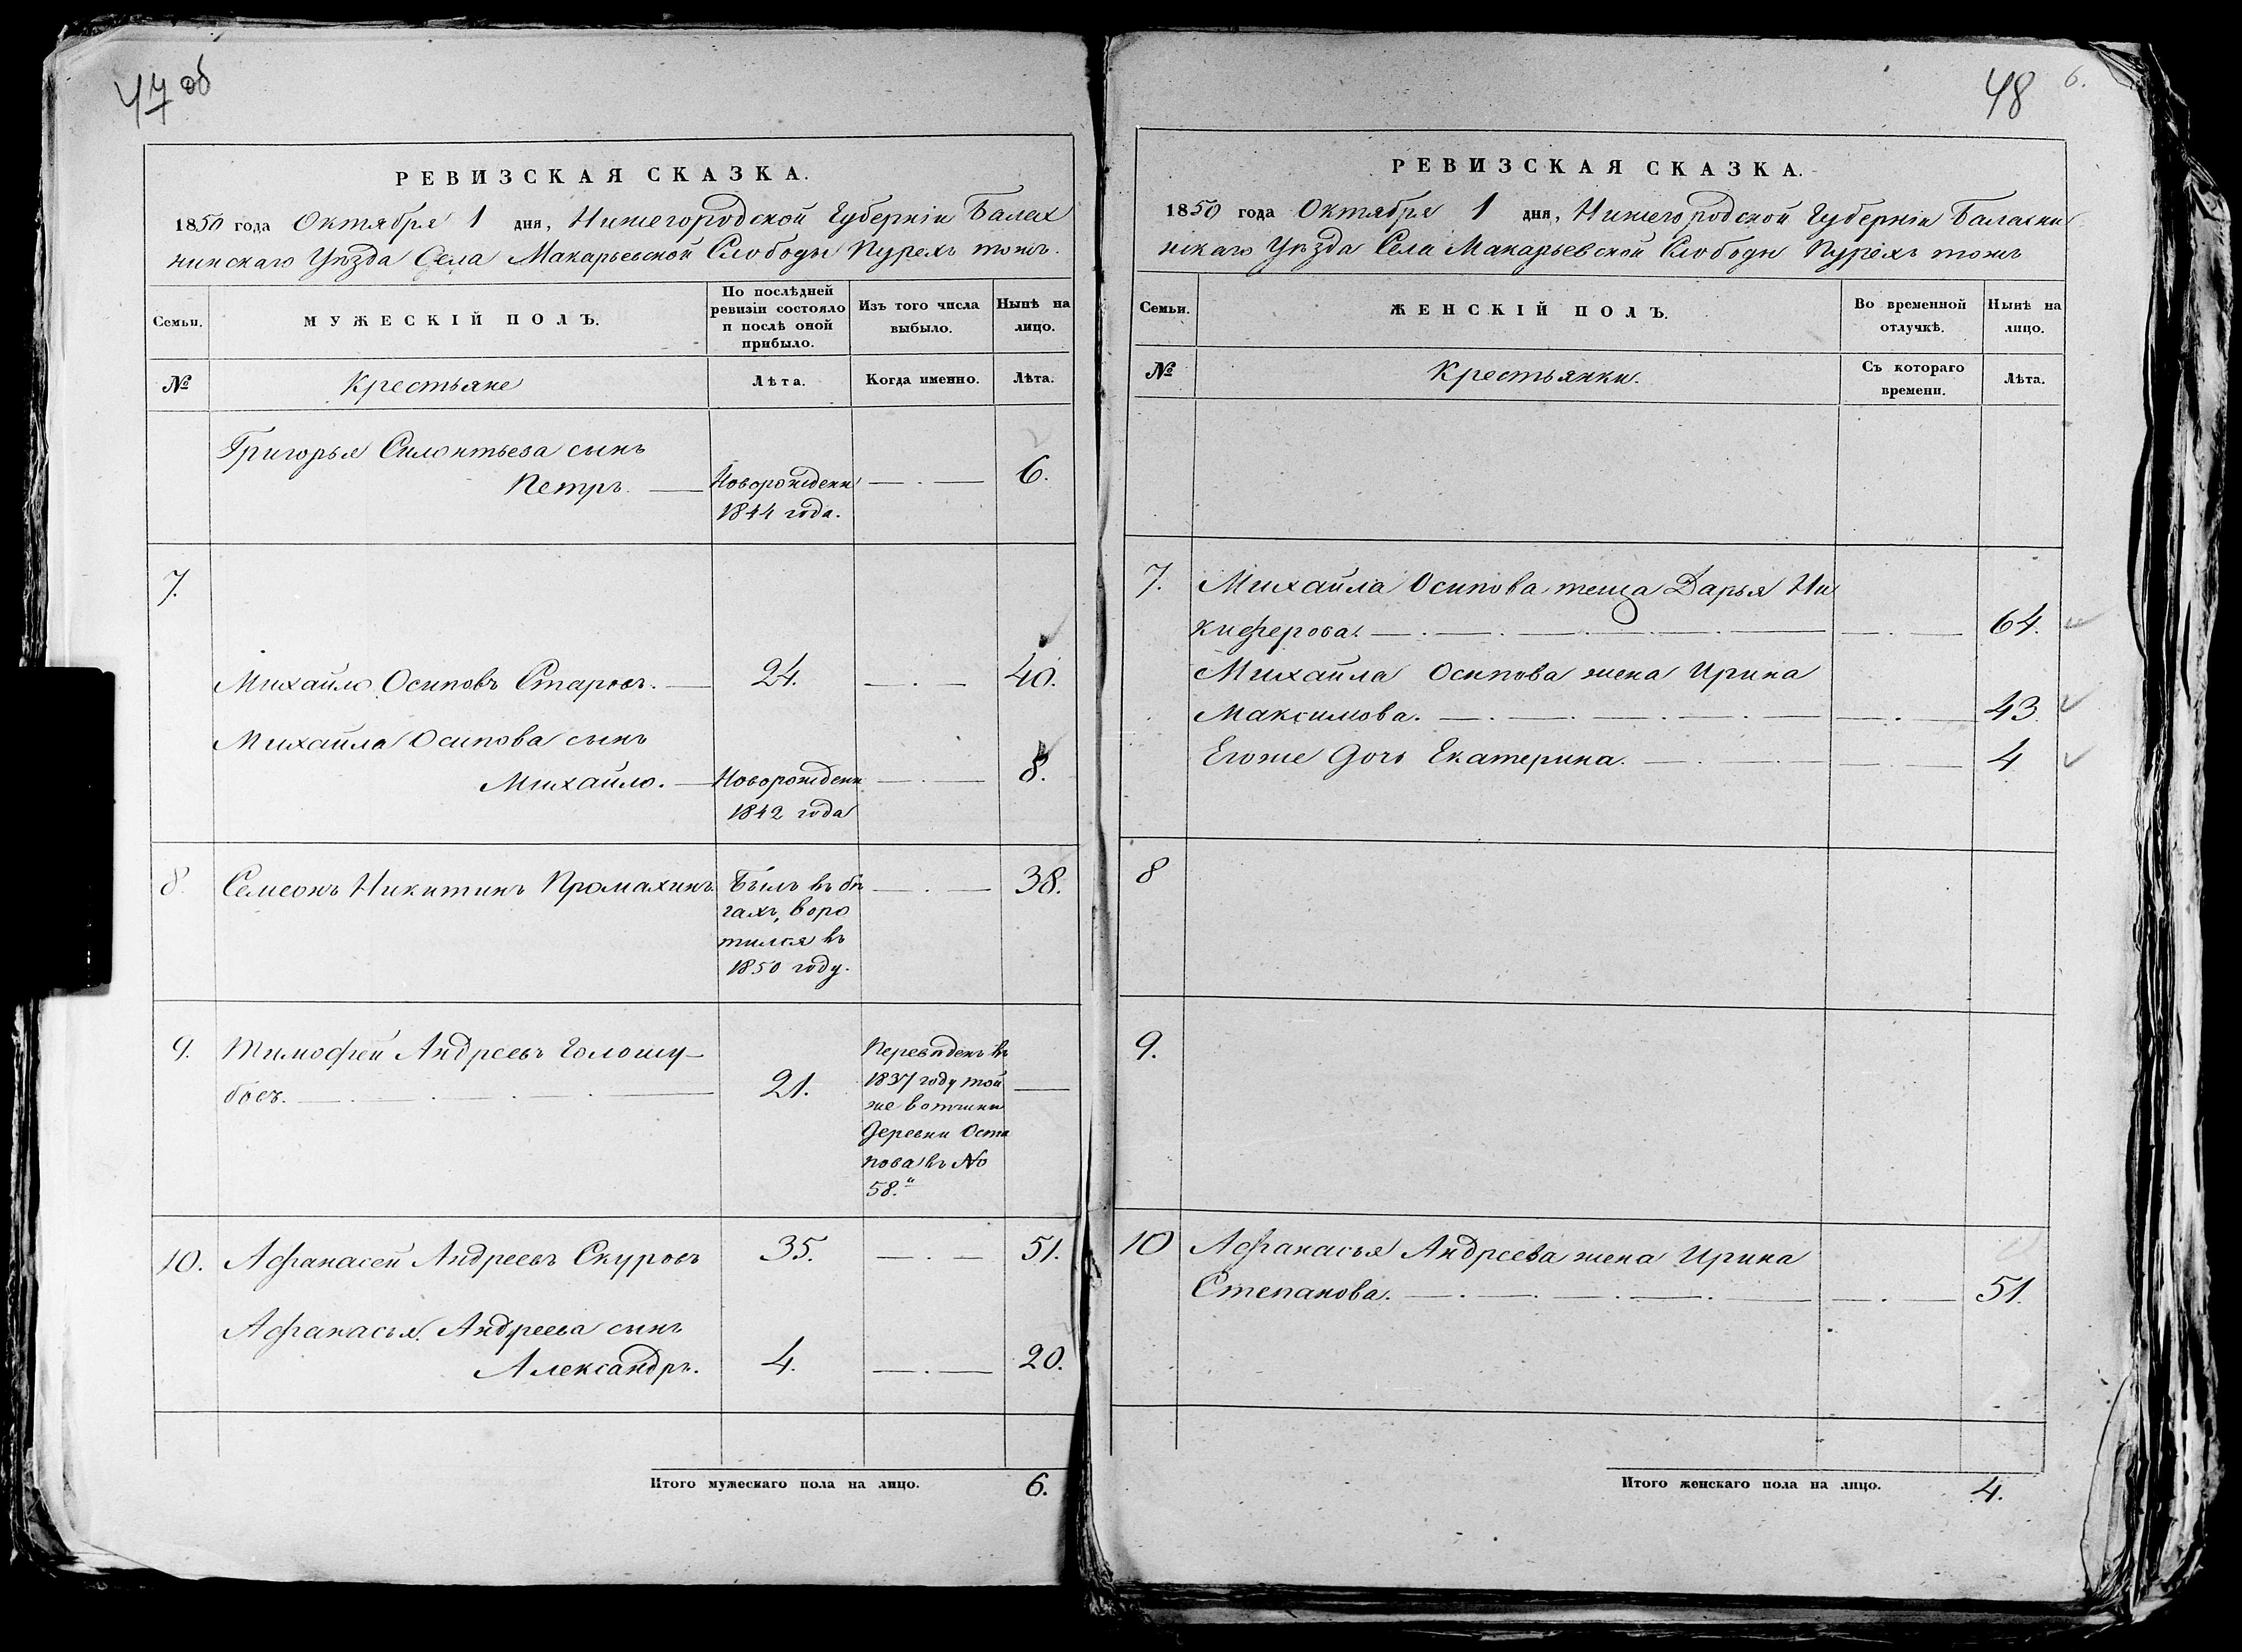 47 об
РЕВИЗСКАЯ СКАЗКА.
1850 года Октября 1 дня, Нижегородской Губерніи Балах
нинскаго Уѣзда Села Макарьевской Слободы Пурехъ тожъ.
Семьи.
МУЖЕСКІЙ ПОЛЪ.
По послѣдней
ревизіи состояло
и послѣ оной
прибыло.
Изъ того числа
выбыло.
Нынѣ на
лицо.
№
Крестьяне
Лѣта.
Когда именно.
Лѣта.
Григорья Силонтьева сынъ
Петръ. — Новорожденн — . — 6.
1844 года.
7.
Михайло Осиповъ Старовъ. — 24. — . — 40.
Михайла Осипова сынъ
Михайло. — Новорожденн — . — 8.
1842 года
8. Семеонъ Никитинъ Промахинъ Былъ въ бѣ — . — 38.
гахъ, воро
тился въ
1850 году.
9. Тимофей Андреевъ Голошу-
бовъ. — . — . — . — . — 21. —
Переведенъ въ
1837 году той
же вотчины
деревни Оста
пова въ №
58."
10. Афанасей Андреевъ Скуровъ 35. — . — 51.
Афанасья Андреева сынъ
Александръ. 4. — . — 20.
Итого мужескаго пола на лицо. 6.
48 6.
РЕВИЗСКАЯ СКАЗКА.
1850 года Октября 1 дня, Нижегородской Губерніи Балахни
нскаго Уѣзда Села Макарьевской Слободы Пурехъ тожъ
Семьи.
ЖЕНСКІЙ ПОЛЪ.
Во временной
отлучкѣ.
Нынѣ на
лицо.
№
Крестьянки.
Съ котораго
времени.
Лѣта.
7. Михайла Осипова теща Дарья Ни
киферова. — . — . — . — . — — . — 64.
Михайла Осипова жена Ирина
Максимова. — . — . — . — . — — . — 43.
Егоже дочь Екатерина. — . — . — — 4
8
9.
10 Афанасья Андреева жена Ирина
Степанова. — . — . — . — . — — . — 51.
Итого женскаго пола на лицо. 4.